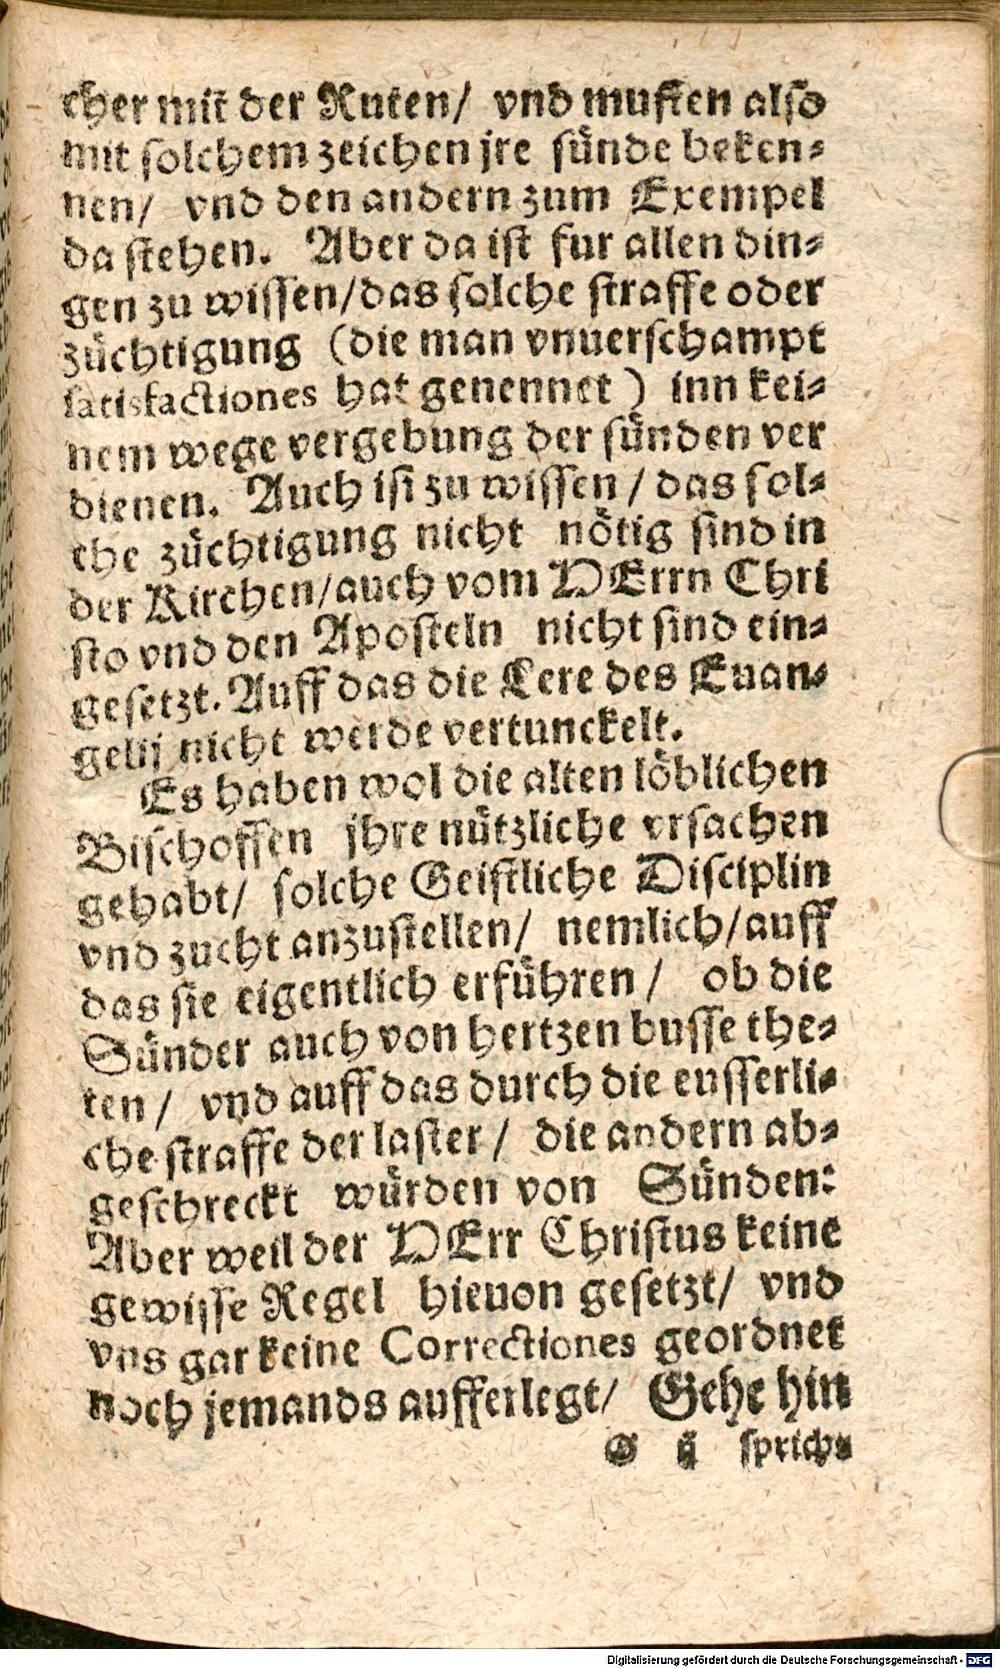 cher mit der Ruten/ vnd musten also
mit solchem zeichen jre sünde beken⸗
nen/ vnd den andern zum Exempel
da stehen. Aber da ist fur allen din⸗
gen zu wissen/das solche straffe oder
züchtigung (die man vnuerschampt
satisfactiones hat genennet) inn kei⸗
nem wege vergebung der sünden ver
dienen. Auch ist zu wissen/ das sol⸗
che züchtigung nicht nötig sind in
der Kirchen/auch vom HErrn Chri
sto vnd den Aposteln nicht sind ein⸗
gesetzt. Auff das die Lere des Euan⸗
gelij nicht werde vertunckelt.
Es haben wol die alten löblichen
Bischoffen jhre nützliche vrsachen
gehabt/ solche Geistliche Disciplin
vnd zucht anzustellen/ nemlich/auff
das sie eigentlich erführen/ ob die
Sünder auch von hertzen busse the⸗
ten/ vnd auff das durch die eusserli⸗
che straffe der laster/ die andern ab⸗
geschreckt würden von Sünden:
Aber weil der HErr Christus keine
gewisse Regel hieuon gesetzt/ vnd
vns gar keine Correctiones geordnet
noch jemands aufferlegt/ Gehe hin
ij spricht
Digitalisierung gefördert durch die Deutsche Forschungsgemeinschaft - DFG